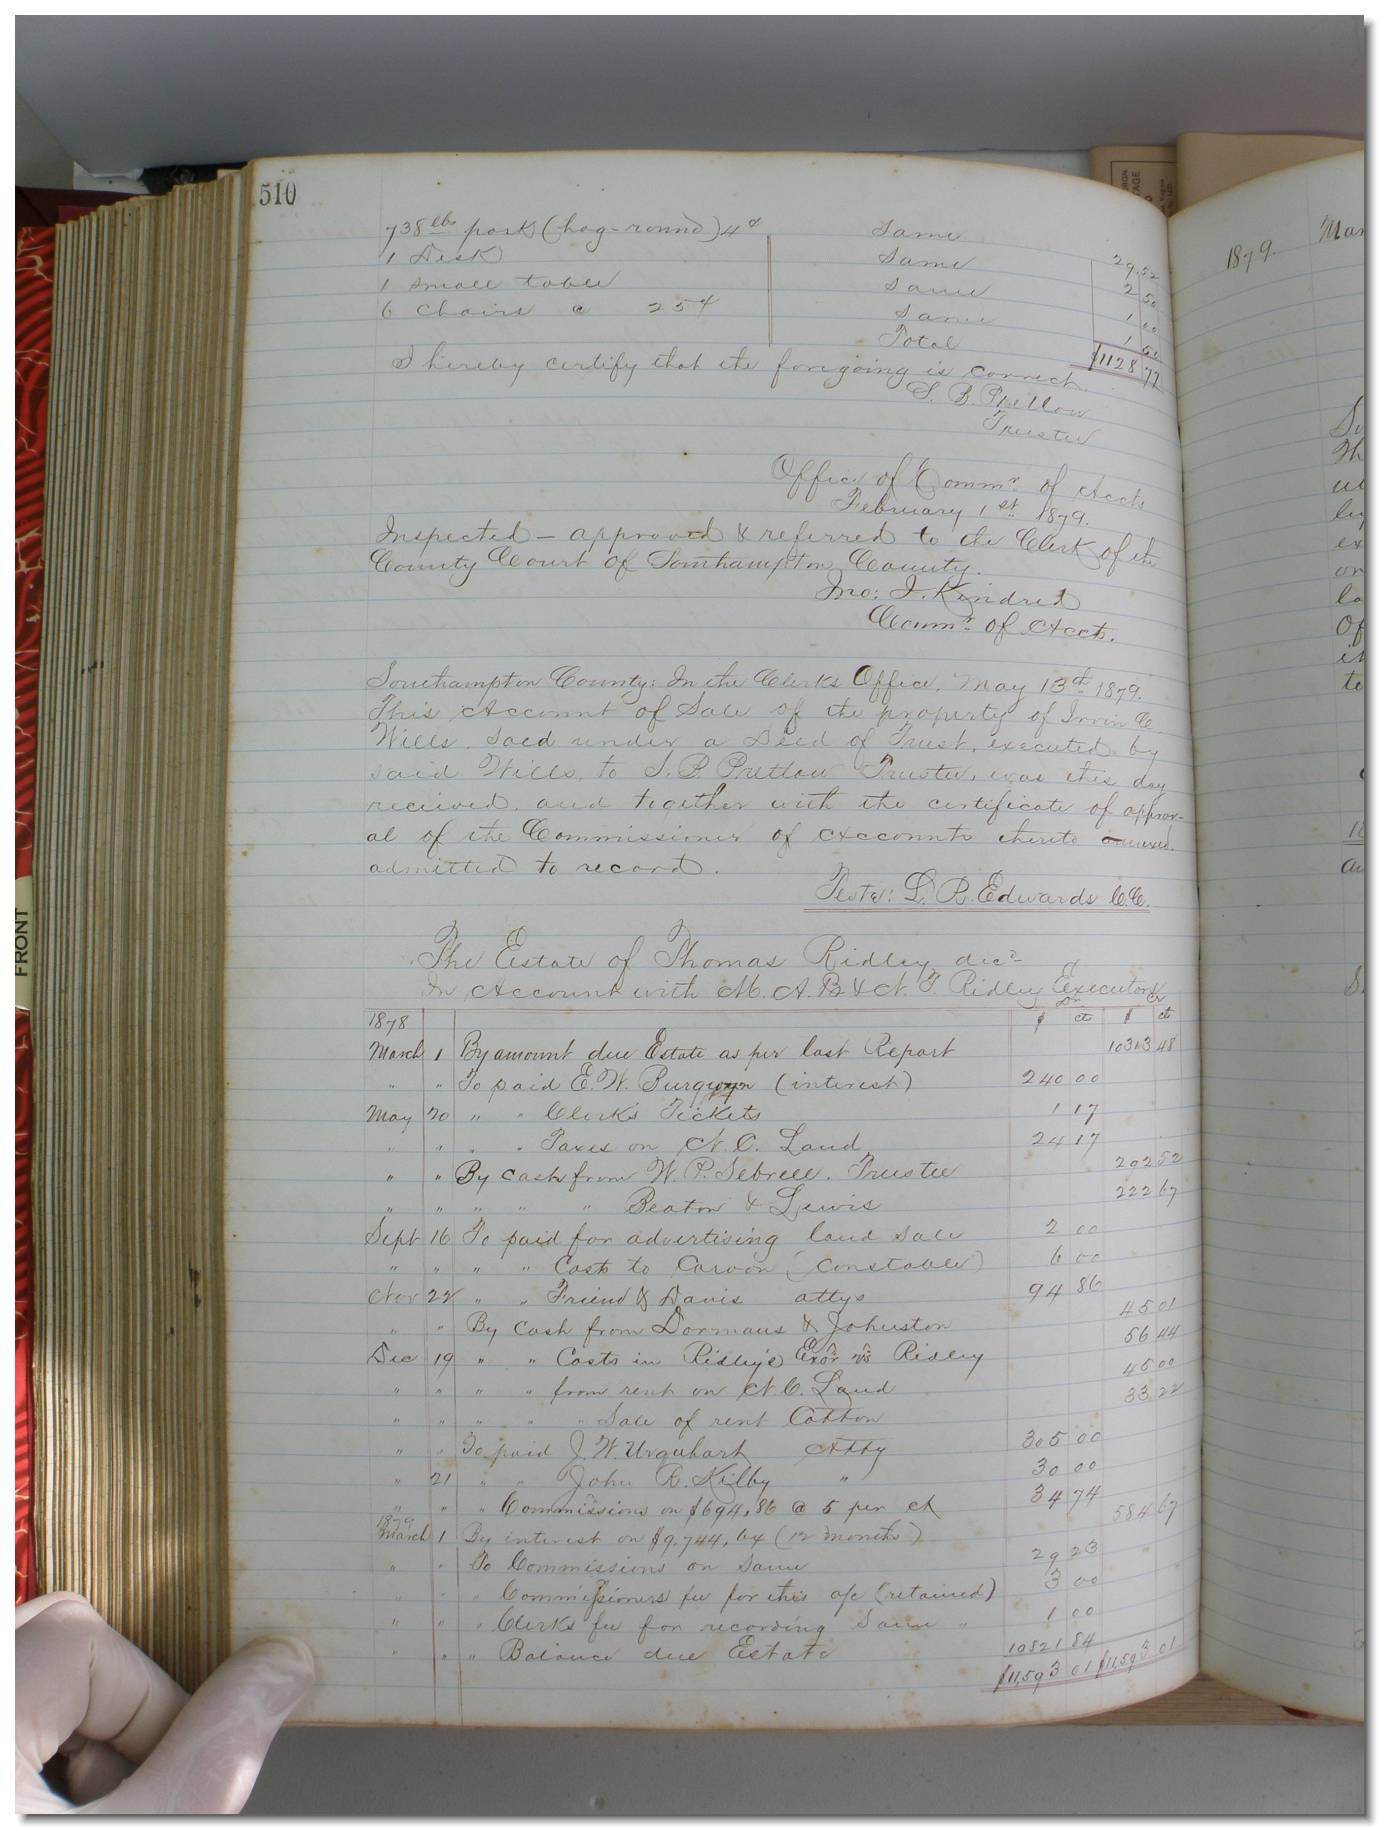 510
738 lbs pork (hog-round) 4¢ Same 29.52
1 Desk Same 2 50
1 small table Same 1 00
6 Chairs @ 25¢ Same 1 50
Total $1128 77
I hereby certify that the foregoing is correct.
Trustee
Office of Commr of Accts
February 1st 1879.
Inspected – approved & referred to the Clerk of the
County Court of Southampton County.
Jno: J. Kindred
Commr of Accts.
Southampton County: In the Clerks Office, May 13th 1879.
This Account of Sale of the property of Irvin C.
Wills, sold under a Deed of Trust, executed by
said Wills, to Pretlow Trustee, was this day
received, and together with the certificate of approv-
al of the Commissioner of Accounts thereto annexed.
admitted to record.
Teste: L. R. Edwards C.C.
The Estate of Thomas Ridley decd
In Account with M. A. B & N. T Ridley Executors
Dr Cr
1878 $ cts $ cts
March 1 By amount due Estate as per last Report 10313 48
" " To paid E. W. Burgwyn (interest) 240 00
May 20 " " Clerk's Tickets 1 17
" " " " Taxes on N. C. Land 24 17
" " By cash from W. P. Sebrell, Trustee 292 52
" " " " " Beaton & Lewis 222 67
Sept 16 To paid for advertising land sale 2 00
" " " " Costs to (constable) 6 00
Nov 22 " " Friend & Davis attys 94 86
" " By Cash from Dormans & Johnston 45 01
Dec 19 " " Costs in Ridley's Exor vs Ridley 56 44
" " " " from rent on N. C. Land 45 00
" " " " " Sale of rent Cotton 33 22
" " To paid J. W. Urquhart Atty 305 00
" 21 " " John R. Kilby " 30 00
" " " Commissions on $694,86 @ 5 per ct 34 74
1879
March 1 By interest on $9,744,64 (12 months) 584 67
" " To Commissions on Same 29 23
" " " Commissioners fee for this a/c (retained) 3 00
" " " Clerks fee for recording Same " 1 00
" " " Balance due Estate 10821 84
$11,593 01 $11,593 01
1879.